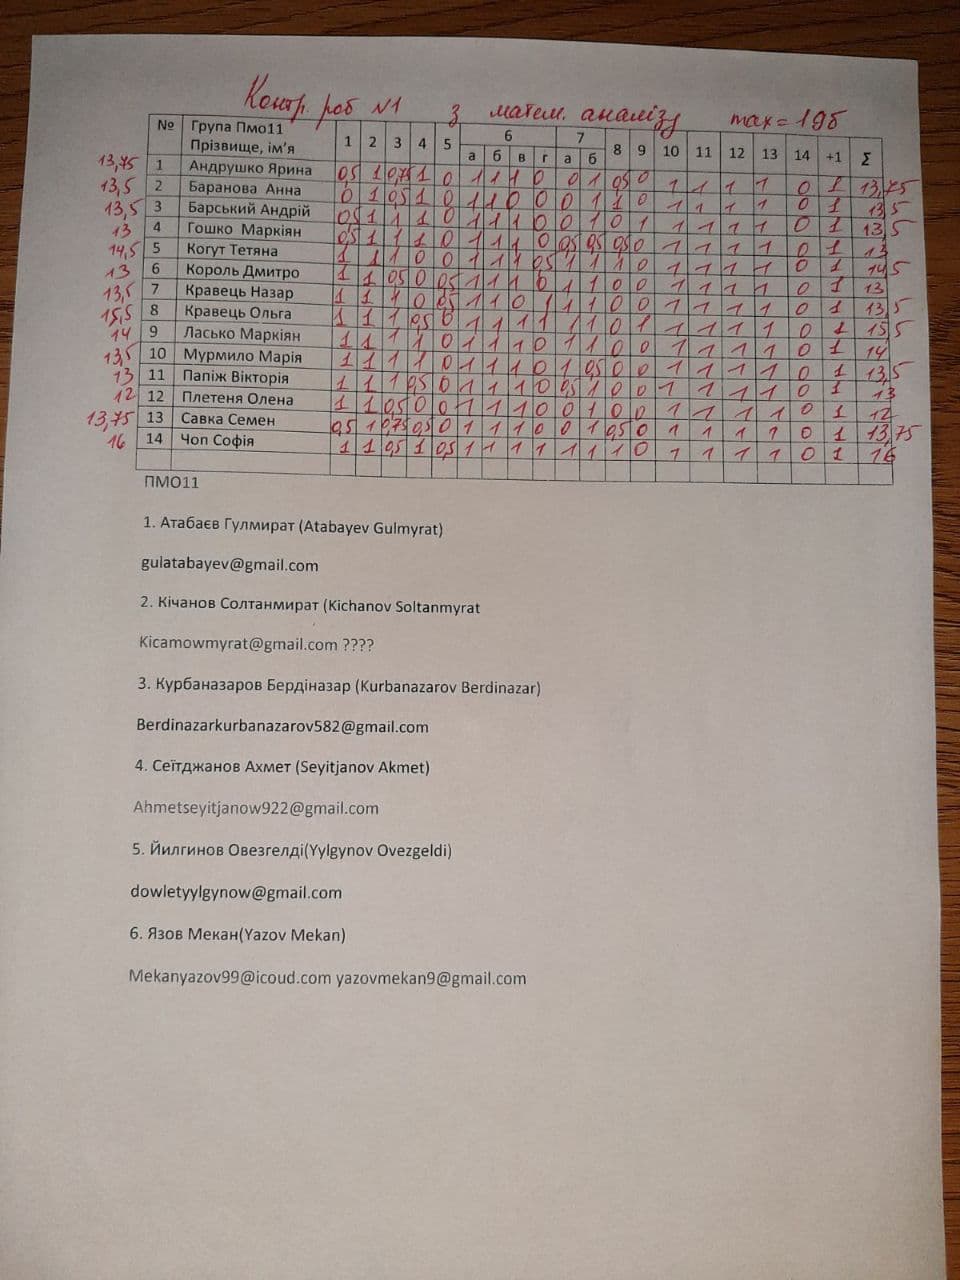 Контр. роб №1 з матем. аналізу max = 19б
№ Група Пмо11 Прізвище, ім’я 1 2 3 4 5 6 7 8 9 10 11 12 13 14 +1 Σ
а б в г а б
13,75 1 Андрушко Ярина 0,5 1 0,75 1 0 1 1 1 0 0 1 0,5 0 1 1 1 1 0 1 13,75
13,5 2 Баранова Анна 0 1 0,5 1 0 1 1 0 0 0 1 1 0 1 1 1 1 0 1 13,5
13,5 3 Барський Андрій 0,5 1 1 1 0 1 1 1 0 0 1 0 1 1 1 1 1 0 1 13,5
13 4 Гошко Маркіян 0,5 1 1 1 0 1 1 1 0 0,5 0,5 0,5 0 1 1 1 1 0 1 13
14,5 5 Когут Тетяна 1 1 1 0 0 1 1 1 0,5 1 1 1 0 1 1 1 1 0 1 14,5
13 6 Король Дмитро 1 1 0,5 0 0,5 1 1 1 0 1 1 0 0 1 1 1 1 0 1 13
13,5 7 Кравець Назар 1 1 1 0 0,5 1 1 0 1 1 1 0 0 1 1 1 1 0 1 13,5
15,5 8 Кравець Ольга 1 1 1 0,5 0 1 1 1 1 1 1 0 1 1 1 1 1 0 1 15,5
14 9 Ласько Маркіян 1 1 1 1 0 1 1 1 0 1 1 0 0 1 1 1 1 0 1 14
13,5 10 Мурмило Марія 1 1 1 1 0 1 1 1 0 1 0,5 0 0 1 1 1 1 0 1 13,5
13 11 Папіж Вікторія 1 1 1 0,5 0 1 1 1 0 0,5 1 0 0 1 1 1 1 0 1 13
12 12 Плетеня Олена 1 1 0,5 0 0 1 1 1 0 0 1 0 0 1 1 1 1 0 1 12
13,75 13 Савка Семен 0,5 1 0,75 0,5 0 1 1 1 0 0 1 0,5 0 1 1 1 1 0 1 13,75
16 14 Чоп Софія 1 1 0,5 1 0,5 1 1 1 1 1 1 1 0 1 1 1 1 0 1 16
ПМО11
1. Атабаєв Гулмират (Atabayev Gulmyrat)
gulatabayev@gmail.com
2. Кічанов Солтанмират (Kichanov Soltanmyrat
Kicamowmyrat@gmail.com ????
3. Курбаназаров Бердіназар (Kurbanazarov Berdinazar)
Berdinazarkurbanazarov582@gmail.com
4. Сеїтджанов Ахмет (Seyitjanov Akmet)
Ahmetseyitjanow922@gmail.com
5. Йилгинов Овезгелді(Yylgynov Ovezgeldi)
dowletyylgynow@gmail.com
6. Язов Мекан(Yazov Mekan)
Mekanyazov99@icoud.com yazovmekan9@gmail.com